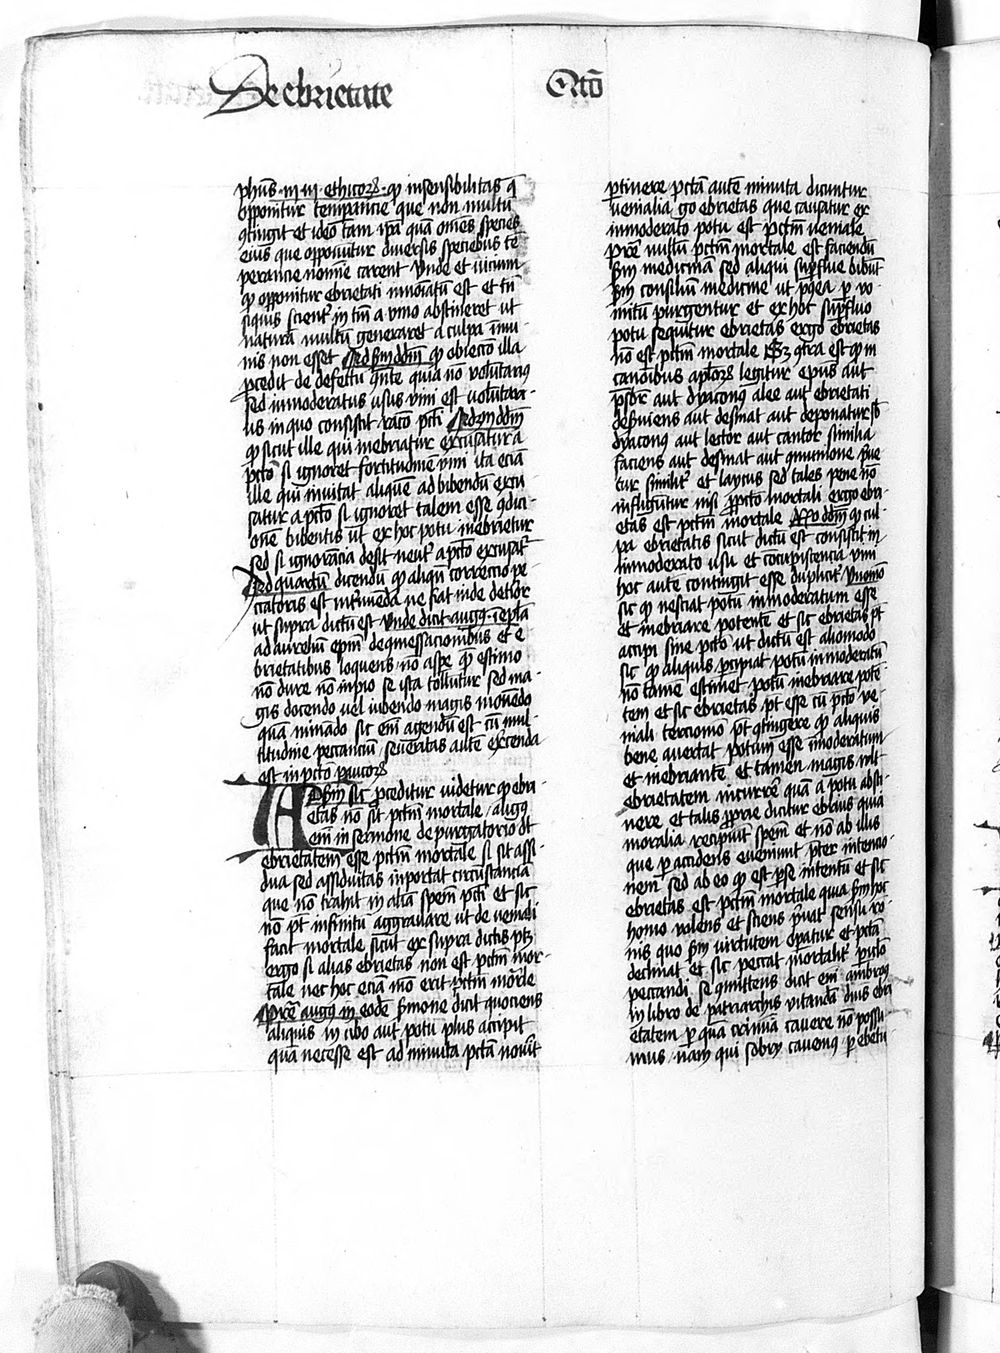 De ebrietate
Q̄tō
ph̄us · in iii · ethicoꝝ · qꝫ insensibilitas q̄
opponitur temꝑancie que non multū
ꝯtingit et ideo tam ip̄a quā om̄es species
eius que opponūtur diuersis speciebus tē
perancie nomīe carent Vnde et uicium
qꝫ opponitur ebrietati innoīatū est et tn̄
siquis scient̾ in tm̄ a vino abstineret ut
naturā multū grauaret a culpa īmu
nis non esset Ad scḋm ḋdm̄ qꝫ obiectō illa
ꝓcedit de defectu q̄nte quia nō voluntariꝯ
sed inmoderatus usus vini est voluntari
us in quo consistit rācō pctī Ad ӡm ḋdm̄
qꝫ sicut ille qui inebriatur excusatur a
pctō si ignoret fortitudinē vini ita eciā
ille qui inuitat aliquē ad bibendū excu
satur a pctō si ignoret talem esse ꝯdici
onē bibentis ut ex hoc potu inebrietur
sed si ignorācia desit neut̾ a pctō excusat̾
Ad quartū dicendū qꝫ aliqn̄ correctio pe
ccatoris est int̾mictēda ne fiat inde deteior
ut supra dictū est Vnde dicit augꝯ ī epl̄a
ad aureliū ep̄m de ꝯmessacionibus et e
brietatibus loquens nō aspe q̄ꝫ estimo
nō dure nō inpio se ista tollūtur sed ma
gis docendo vel iubendo magis monēdo
quā minādo sic em̄ agendū est cū mul
titudine peccanciū seueritas autē ex̾cenda
est in pctō paucoꝝ
Ad scḋm sic ꝓceditur videtur qꝫ ebri
etas nō sit pctm̄ mortale / augꝯ
em̄ in sermone de purgatorio dt̄
ebrietatem esse pctm̄ mortale si sit assi
dua sed assiduitas inportat circūstanciā
que nō trahit in aliā spēm pctī et sic
nō pt̄ infinitū aggrauare ut de veniali
faciat mortale sicut ex supra dictis ptꝫ
ergo si alias ebrietas non est pctm̄ mor
tale nec hoc eciā mō erit pctm̄ mōrle
Pret̾ē augꝯ in eodē s̄mone dicit quociens
aliquis in cibo aut potu plus accipit
quā necesse est ad minuta pctā nouit
ꝑtinere pctā autē minuta dicuntur
venialia go ebrietas que causatur ex
inmoderato potu est pctm̄ veniale
Pret̾ē nullū pctm̄ mortale est faciendū
scḋm medicinā sed aliqui suꝑflue bibūt
scḋm consiliū medicine ut postea ꝑ vo
mitū purgentur et ex hoc suꝑfluo
potu sequitur ebrietas ergo ebrietas
nō est pctm̄ mortale Sꝫ ꝯtra est qꝫ in
canonibus apl̄oꝝ legitur ep̄us aut
p̄sbr̄ aut dyaconꝯ alee aut ebrietati
deseruiens aut desinat aut deponatur sb
dyaconꝯ aut lector aut cantor similia
faciens aut desinat aut ꝯmunione p̄ue
tur similit̾ et laycus sed tales pene nō
infligūtur nisi ꝓ pctō mortali ergo ebri
etas est pctm̄ mortale Rn̄o ḋdm̄ qꝫ cul
pa ebrietatis sicut dictū est consistit in
inmoderato usu et cōcupiscencia vini
hoc autē contingit esse duplicit̾ Vno mō
sic qꝫ nesciat potū inmoderatum esse
et inebriare potentē et sic ebrietas pt̄
accipi sine pctō ut dictū est alio modo
sic qꝫ aliquis ꝑcipiat potū inmoderatū
nō tamē estimet potū inebriare potē
tem et sic ebrietas pt̄ esse cū pctō ve
niali tercio mō pt̄ ꝯtingere qꝫ aliquis
bene aduertat potum esse īmoderatum
et inebriantē et tamen magis vult
ebrietatem incurrē quā a potu absti
nere et talis ꝓprie dicitur ebrius quia
moralia recipiūt spēm et nō ab illis
que ꝑ accidens eueniūt pret̾ intencio
nem sed ab eo qꝫ est ꝑ se intentū et sic
ebrietas est pctm̄ mortale quia scḋm hoc
homo volens et sciens p̄uat se usu rō
nis quo scḋm virtutem oꝑatur et pctā
declinat et sic peccat mortalit̾ ꝑiclo
peccandi se ꝯmittens dicit em̄ ambroꝯ
in libro de patriarchis vitandā dius ebri
etatem ꝑ quā crimina cauere nō possu
mus nam qui sobrij cauemꝯ ꝑ ebrietū